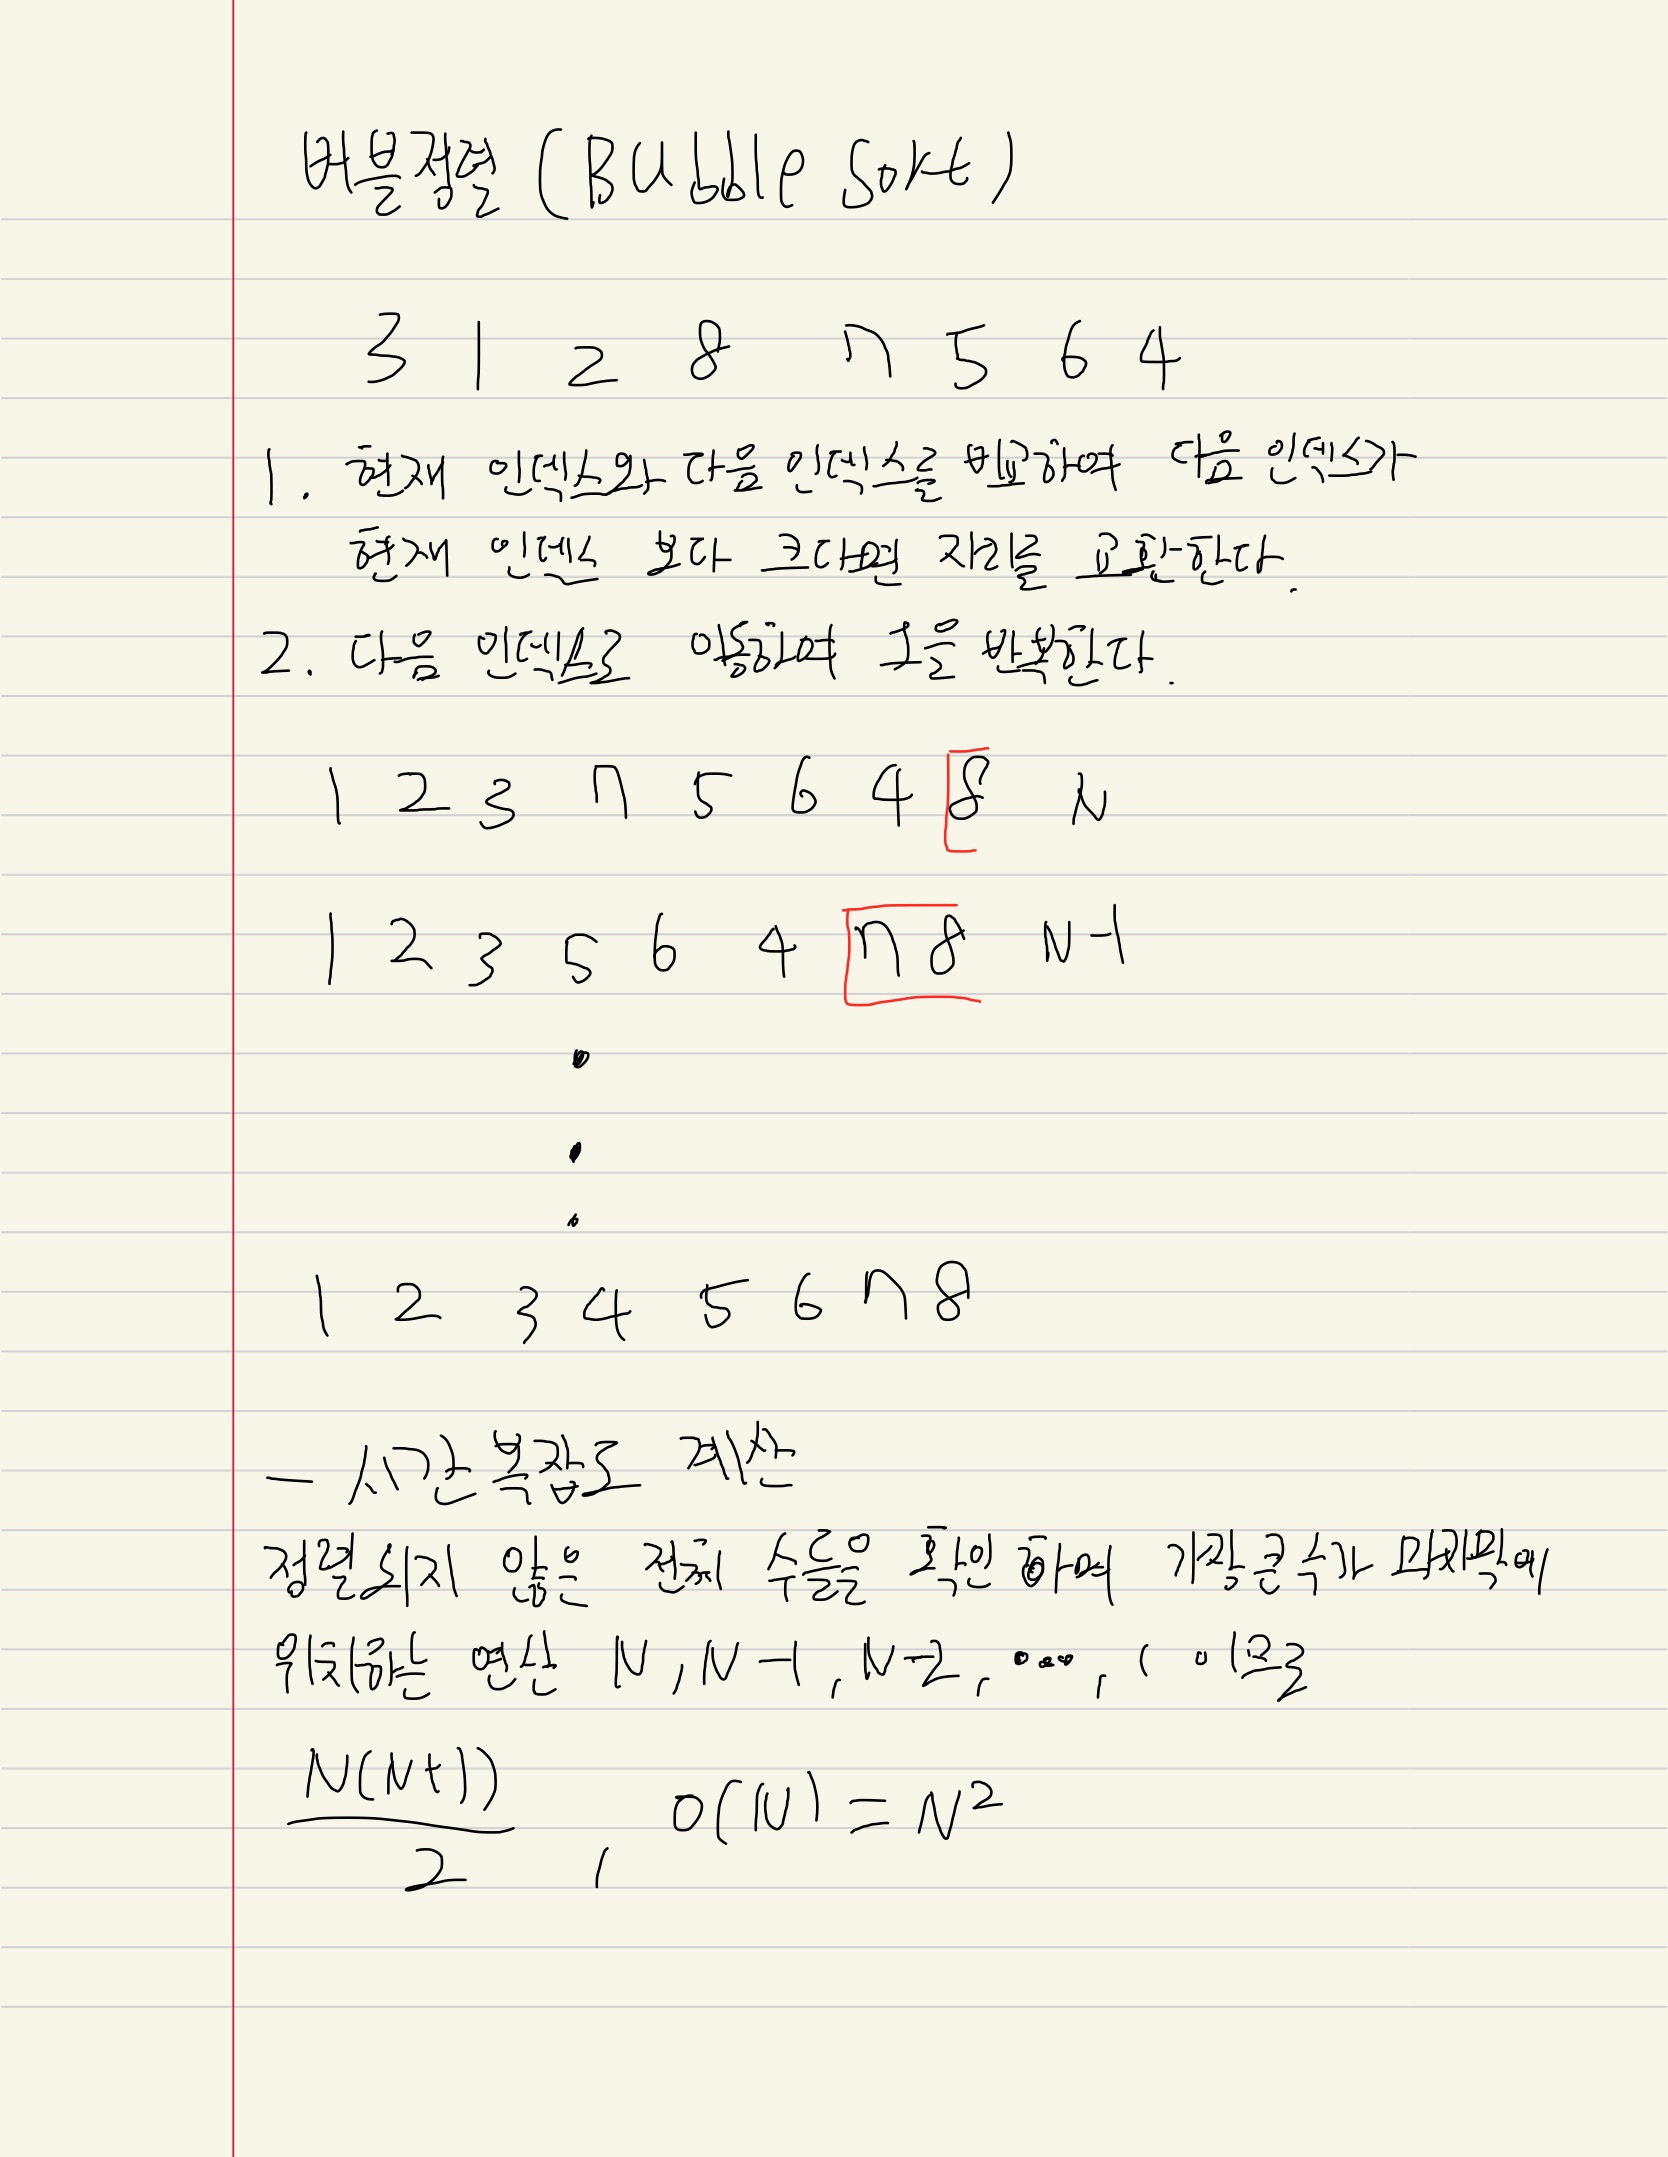 버블정렬 (Bubble Sort)
3 1 2 8 7 5 6 4
1. 현재 인덱스와 다음 인덱스를 비교하여 다음 인덱스가
현재 인덱스 보다 크다면 자리를 교환한다.
2. 다음 인덱스로 이동하여 1을 반복한다.
1 2 3 7 5 6 4 8 N
1 2 3 5 6 4 7 8 N-1
1 2 3 4 5 6 7 8
- 시간복잡도 계산
정렬되지 않은 전체 수들을 확인 하여 가장큰수가 마지막에
위치하는 연산 N, N-1, N-2, ..., 1 이므로
N(N+1)
2 , O(N) = N²